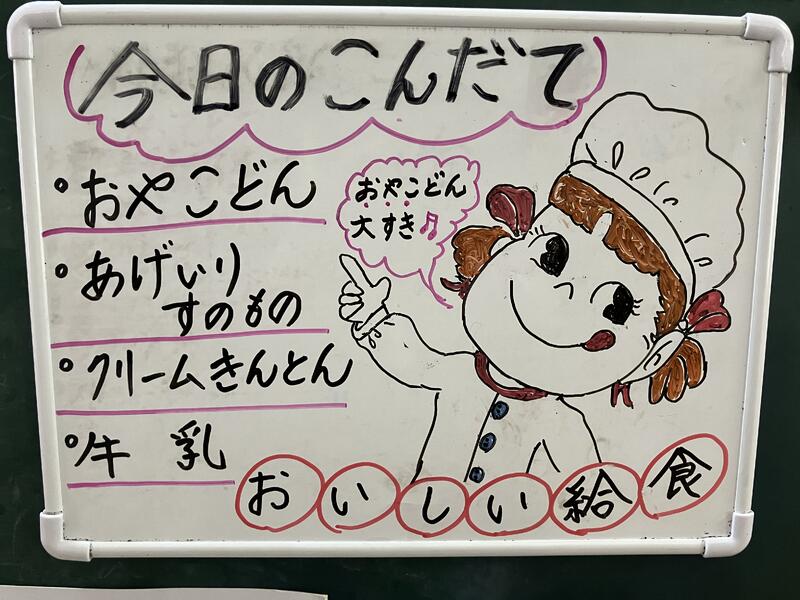 今日のこんだて
。おやこどん
。あげいり
すのもの
。クリームきんとん
。牛 乳
おやこどん
大すき♫
おいしい給食